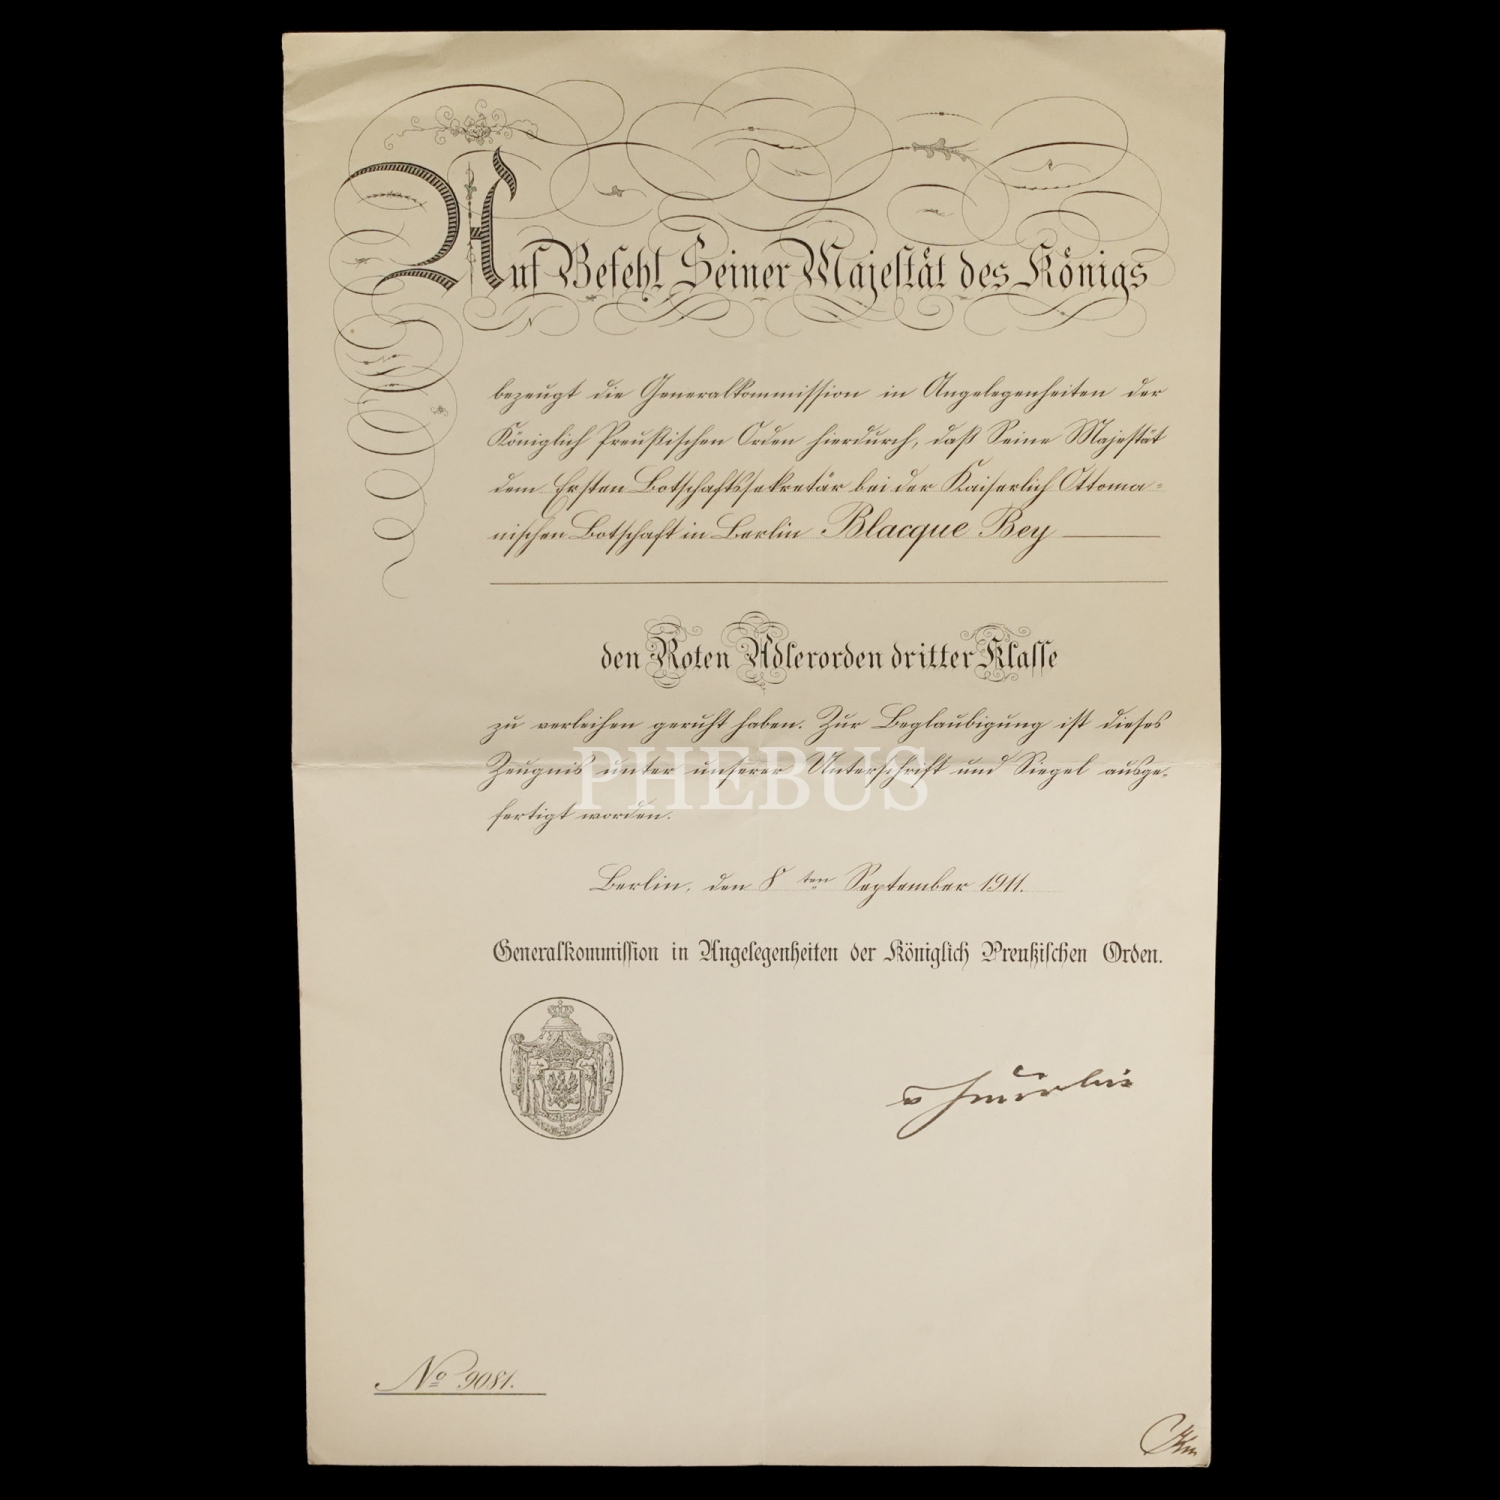 Auf Befehl Seiner Majestät des Königs
bezeugt die Generalkommission in Angelegenheiten der
Königlich Preußischen Orden hierdurch, daß Seine Majestät
dem Ersten Botschaftssekretär bei der Kaiserlich Ottoma-
nischen Botschaft in Berlin Blacque Bey
den Roten Adlerorden dritter Klasse
zu verleihen geruht haben. Zur Beglaubigung ist dieses
Zeugnis unter unserer Unterschrift und Siegel ausge-
fertigt worden.
PHEBUS
Berlin, den 8ten September 1911.
Generalkommission in Angelegenheiten der Königlich Preußischen Orden.
No 9081.